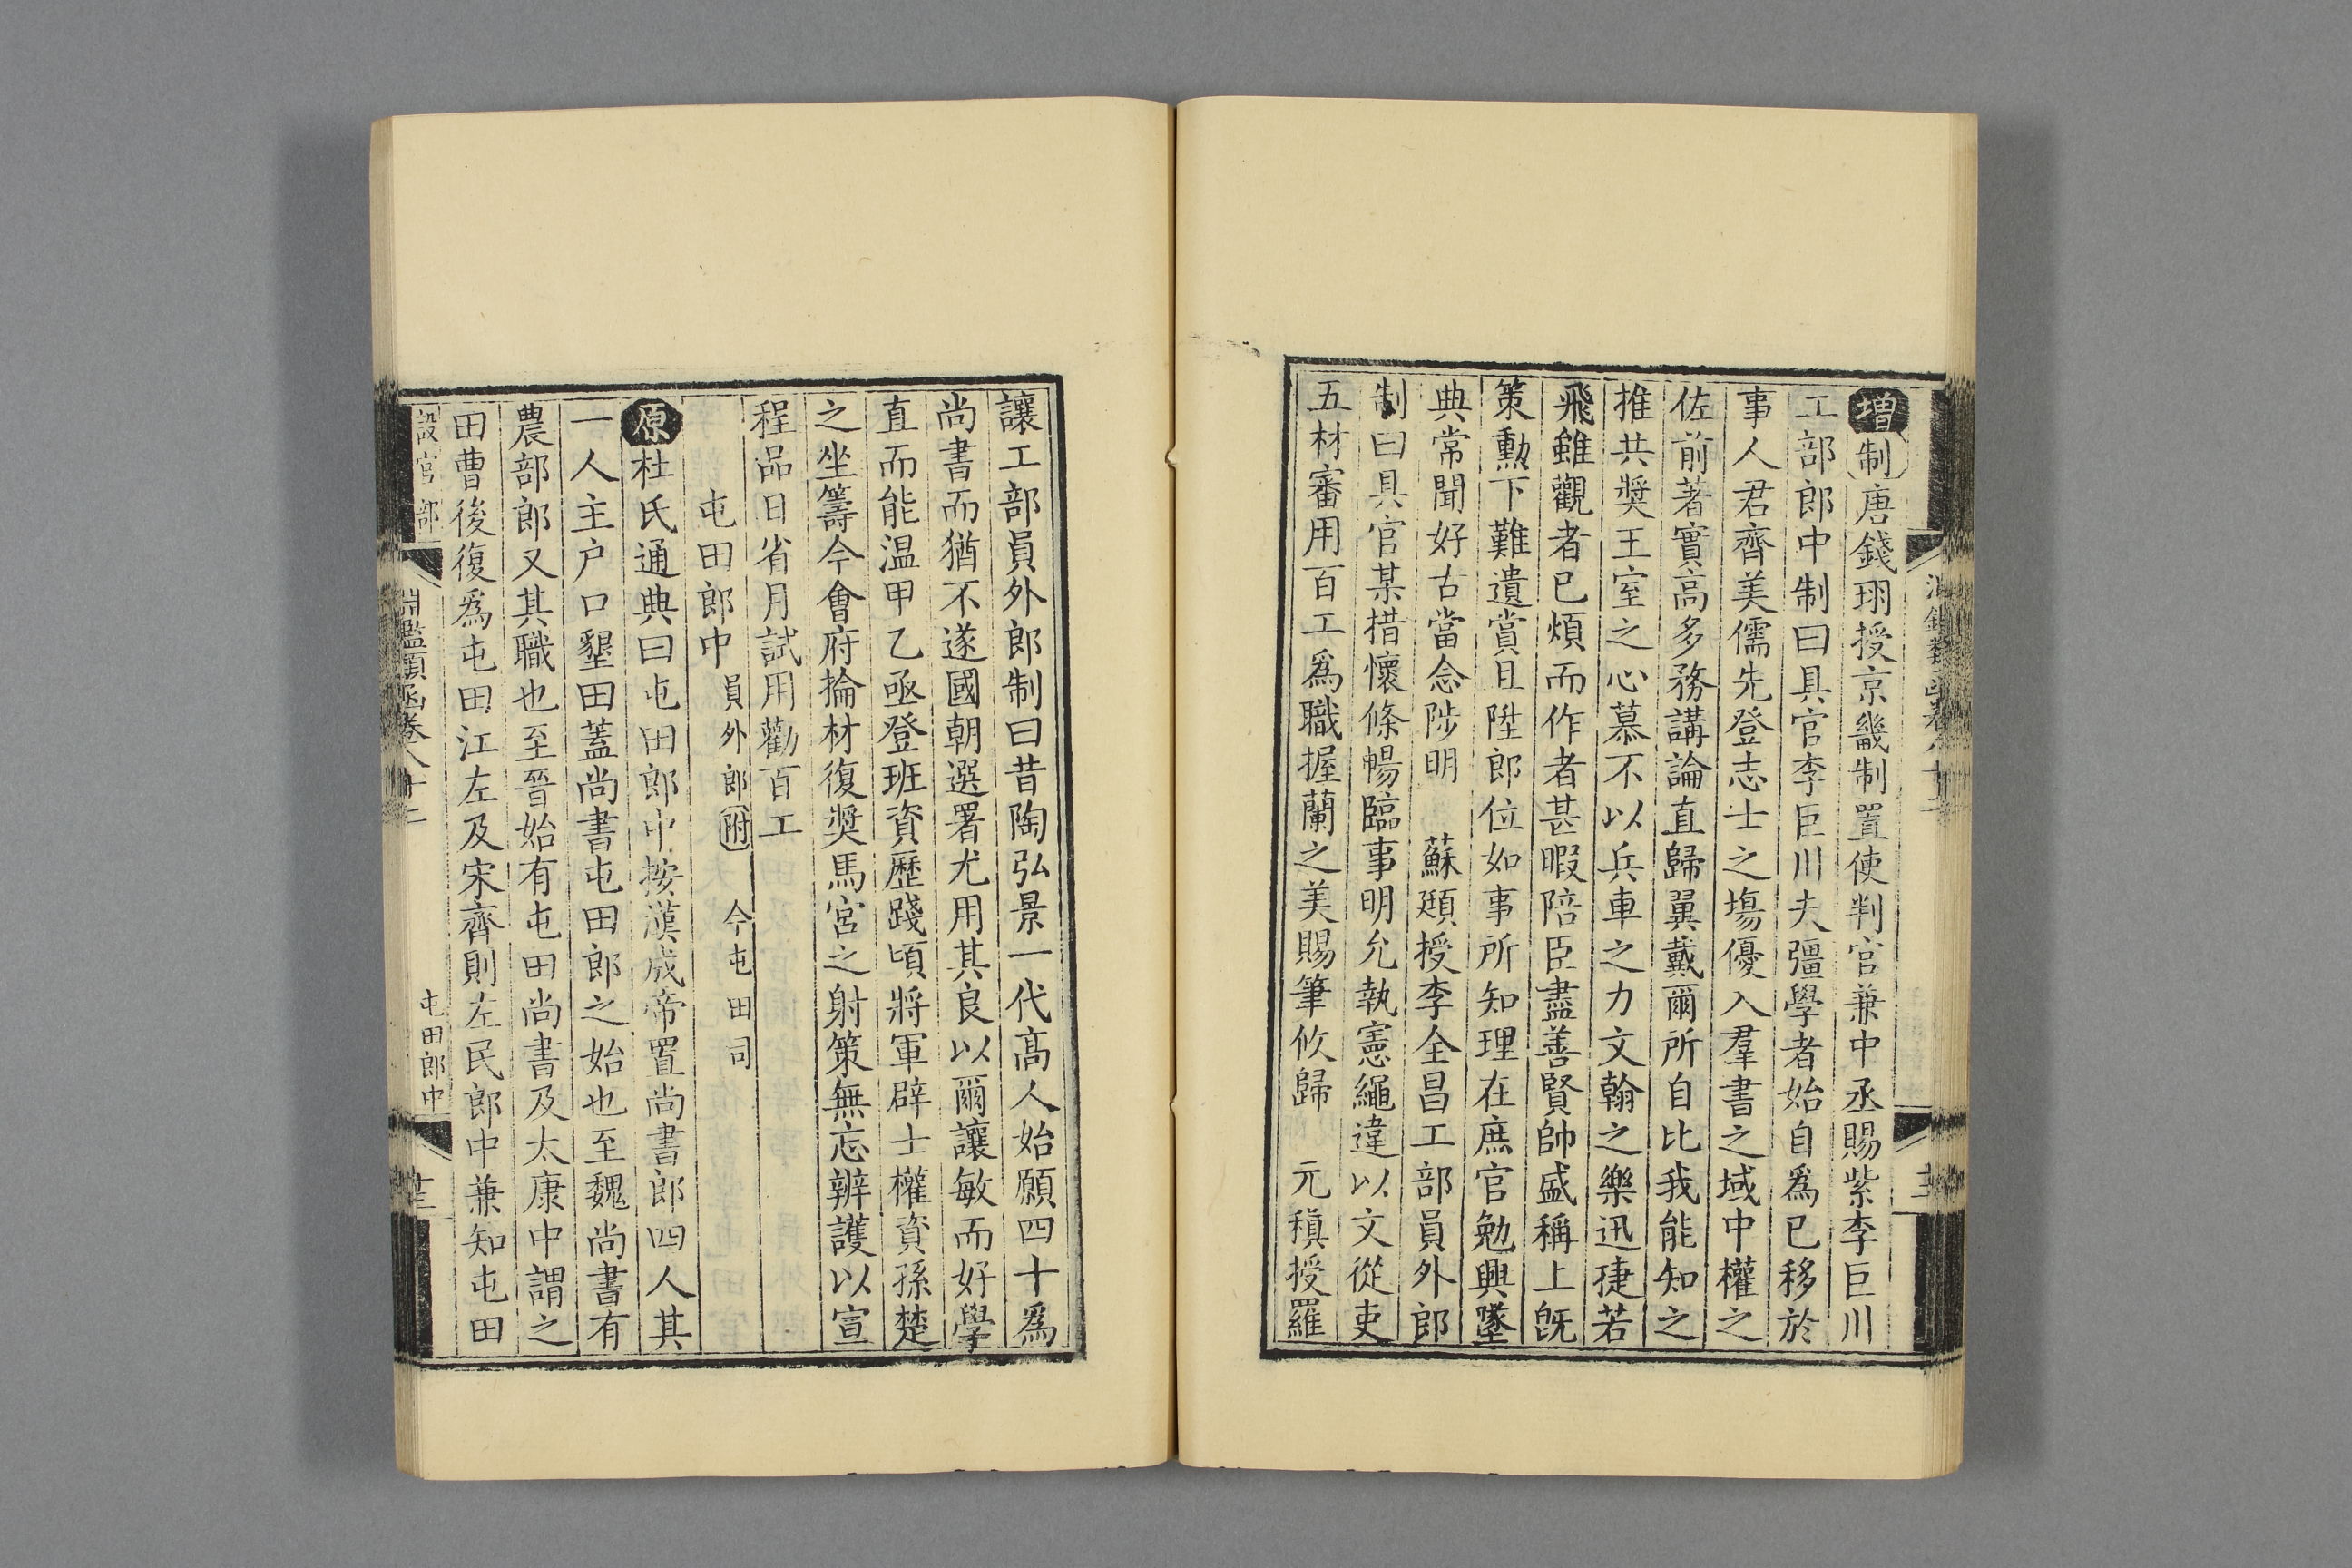 增制唐錢珝授京畿制置使判官兼中丞賜紫李巨川
工部郎中制曰具官李巨川夫彊學者始自爲已移於
事人君齊美儒先登志士之塲優入羣書之域中權之
佐前著實高多務講論直歸翼戴爾所自比我能知之
推共獎王室之心慕不以兵車之力文翰之樂迅捷若
飛雖觀者已煩而作者甚暇陪臣盡善賢帥盛稱上旣
策勳下難遺賞且陞郎位如事所知理在庶官勉興墜
典常聞好古當念陟明 蘇頲授李全昌工部員外郎
制曰具官某措懷條暢臨事明允執憲繩違以文從吏
五材審用百工爲職握蘭之美賜筆攸歸 元稹授羅
讓工部員外郎制曰昔陶弘景一代高人始願四十爲
尚書而猶不遂國朝選署尤用其良以爾讓敏而好學
直而能温甲乙亟登班資歷踐頃將軍辟士權資孫楚
之坐籌今會府掄材復獎馬宮之射策無忘辨護以宣
程品日省月試用勸百工
屯田郎中 員外郎附 今屯田司
原杜氏通典曰屯田郎中按漢成帝置尚書郎四人其
一人主户口墾田蓋尚書屯田郎之始也至魏尚書有
農部郎又其職也至晉始有屯田尚書及太康中謂之
田曹後復爲屯田江左及宋齊則左民郎中兼知屯田
設官部 淵鑑類函卷八十二 屯田郎中 十三